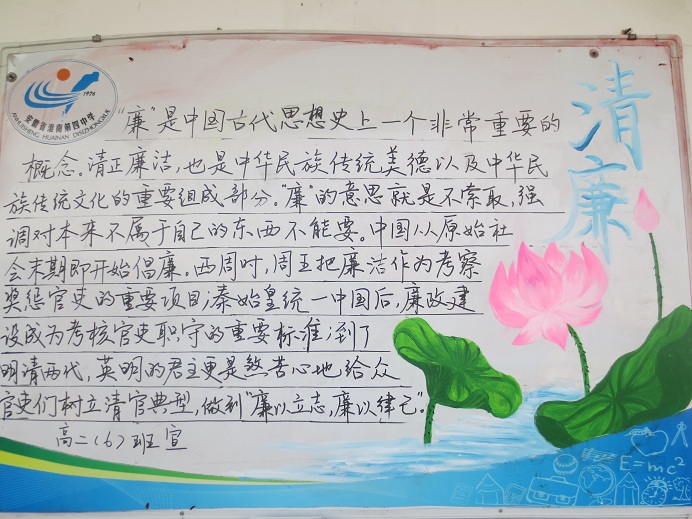 1976
安徽省淮南第四中学
ANHUISHENG HUAINAN DISIZHONGXUE
清廉
"廉"是中国古代思想史上一个非常重要的
概念。清正廉洁,也是中华民族传统美德以及中华民
族传统文化的重要组成部分。"廉"的意思就是不索取,强
调对本来不属于自己的东西不能要。中国从原始社
会末期即开始倡廉。西周时,周王把廉洁作为考察
奖惩官吏的重要项目;秦始皇统一中国后,廉政建
设成为考核官吏职守的重要标准;到了
明清两代,英明的君主更是煞苦心地给众
官吏们树立清官典型,做到"廉以立志,廉以律己"。
高二(6)班宣
E=mc²